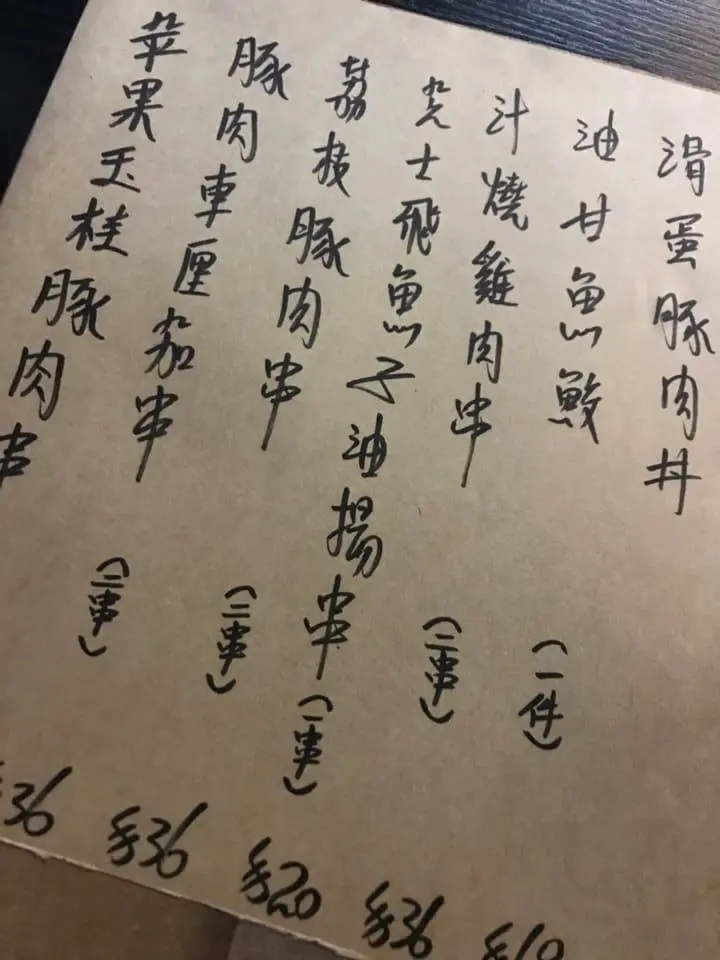 滑蛋豚肉丼
油甘魚鮫 (一件)
汁燒雞肉串 (二串) $36
芝士飛魚子油揚串 (一串) $20
荔枝豚肉串 (二串) $36
豚肉車厘茄串 (二串) $36
苹果玉桂豚肉串